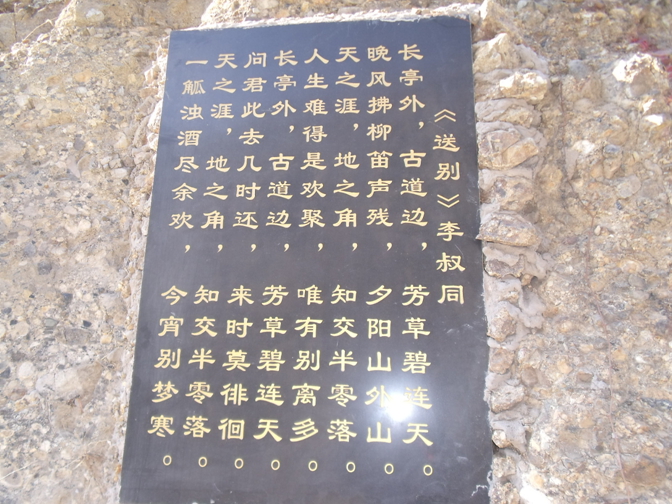 《送别》李叔同
长亭外，古道边，芳草碧连天。
晚风拂柳笛声残，夕阳山外山。
天之涯，地之角，知交半零落。
人生难得是欢聚，唯有别离多。
长亭外，古道边，芳草碧连天。
问君此去几时还，来时莫徘徊。
天之涯，地之角，知交半零落。
一觚浊酒尽余欢，今宵别梦寒。